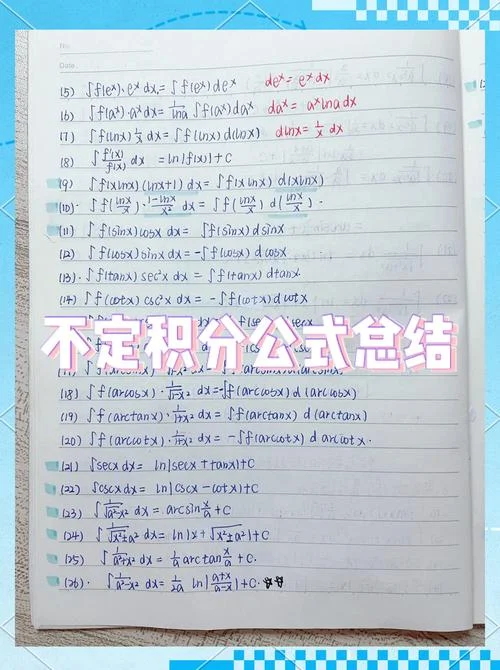 No.
Date.
(5) ∫f(eˣ)·eˣ dx = ∫f(eˣ)deˣ deˣ = eˣdx
(6) ∫f(aˣ)·aˣ dx = 1/lna ∫f(aˣ)daˣ daˣ = aˣlna dx
(7) ∫f(lnx)·1/x dx = ∫f(lnx)d(lnx) dlnx = 1/x dx
(8) ∫f'(x)/f(x) dx = ln|f(x)|+C
(9) ∫f(xlnx)(lnx+1)dx = ∫f(xlnx)d(xlnx)
(10). ∫f(lnx/x)·(1-lnx)/x² dx = ∫f(lnx/x)d(lnx/x).
(11) ∫f(sinx)cosxdx = ∫f(sinx)dsinx
(12) ∫f(cosx)sinxdx = -∫f(cosx)dcosx
(13). ∫f(tanx)sec²xdx = ∫f(tanx)dtanx
(14) ∫f(cotx)csc²xdx = -∫f(cotx)dcotx
不定积分公式总结
(18) ∫f(arccosx)·1/√(1-x²) dx = -∫f(arccosx)d(arccosx)
(19) ∫f(arctanx)·1/(1+x²) dx = ∫f(arctanx)d(arctanx)
(20) ∫f(arccotx)·1/(1+x²) dx = -∫f(arccotx)d arccotx.
(21) ∫secxdx = ln|secx+tanx|+C
(22) ∫cscxdx = ln|cscx-cotx|+C
(23) ∫1/√(a²-x²) dx = arcsin x/a +C
(24) ∫1/√(x²±a²) dx = ln|x+√(x²±a²)|+C
(25) ∫1/(a²+x²) dx = 1/a arctan x/a +C.
(26). ∫1/(a²-x²) dx = 1/2a ln|(a+x)/(a-x)|+C. ☆☆